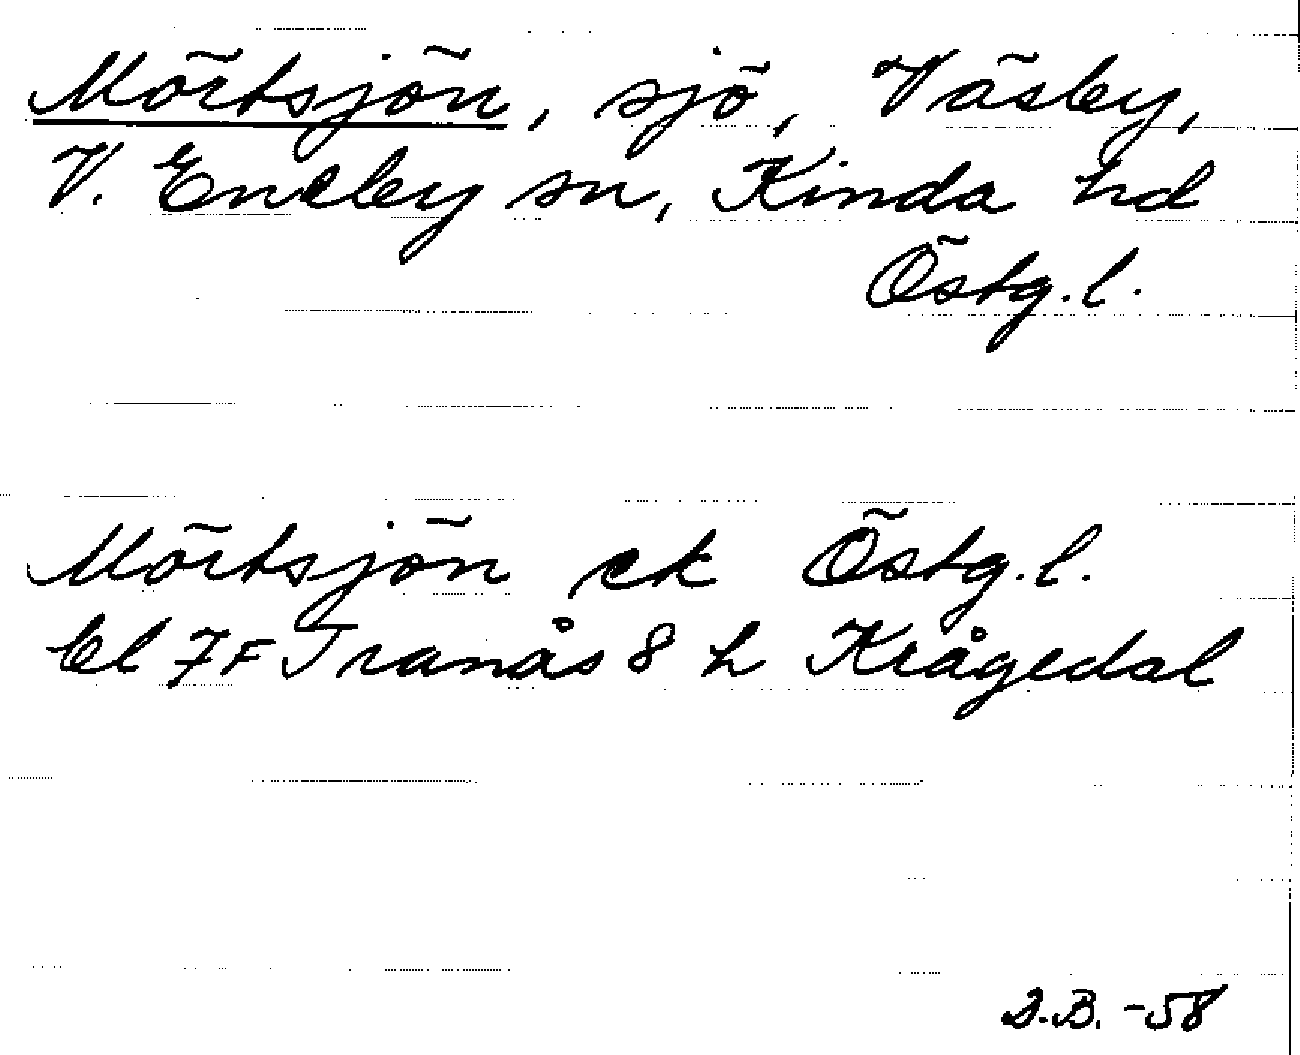 Mörtsjön, sjö, Väsby,
V. Eneby sn, Kinda hd
Östg.l.
Mörtsjön ek Östg.l.
Bl 7F Tranås 8 h Krågedal
D.B. -58